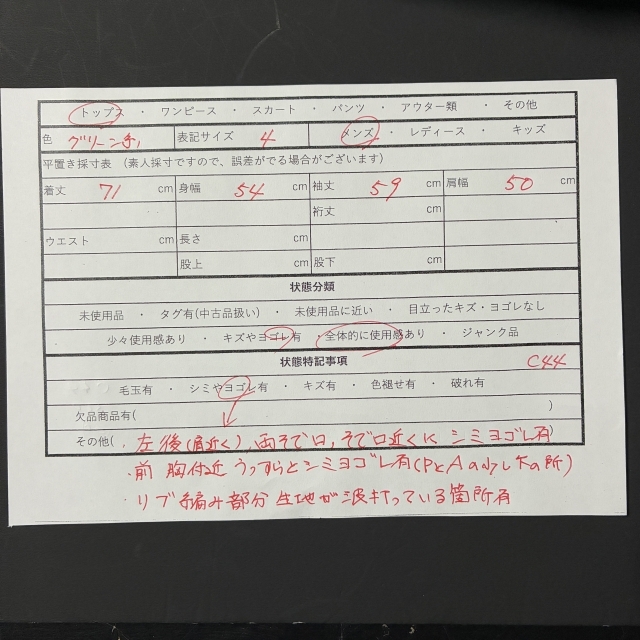 トップス ・ ワンピース ・ スカート ・ パンツ ・ アウター類 ・ その他
色 グリーン系 表記サイズ 4 メンズ ・ レディース ・ キッズ
平置き採寸表（素人採寸ですので、誤差がでる場合がございます）
着丈 71 cm 身幅 54 cm 袖丈 59 cm 肩幅 50 cm
裄丈 cm
ウエスト cm 長さ cm
股上 cm 股下 cm
状態分類
未使用品 ・ タグ有(中古品扱い) ・ 未使用品に近い ・ 目立ったキズ・ヨゴレなし
少々使用感あり ・ キズやヨゴレ有 ・ 全体的に使用感あり ・ ジャンク品
状態特記事項 C44
毛玉有 ・ シミやヨゴレ有 ・ キズ有 ・ 色褪せ有 ・ 破れ有
欠品商品有( )
その他( 左後(肩近く)、両そで口、そで口近くに シミヨゴレ有
・前 胸付近 うっすらとシミヨゴレ有(PとAの少し下の所)
・リブ編み部分 生地が波打っている箇所有